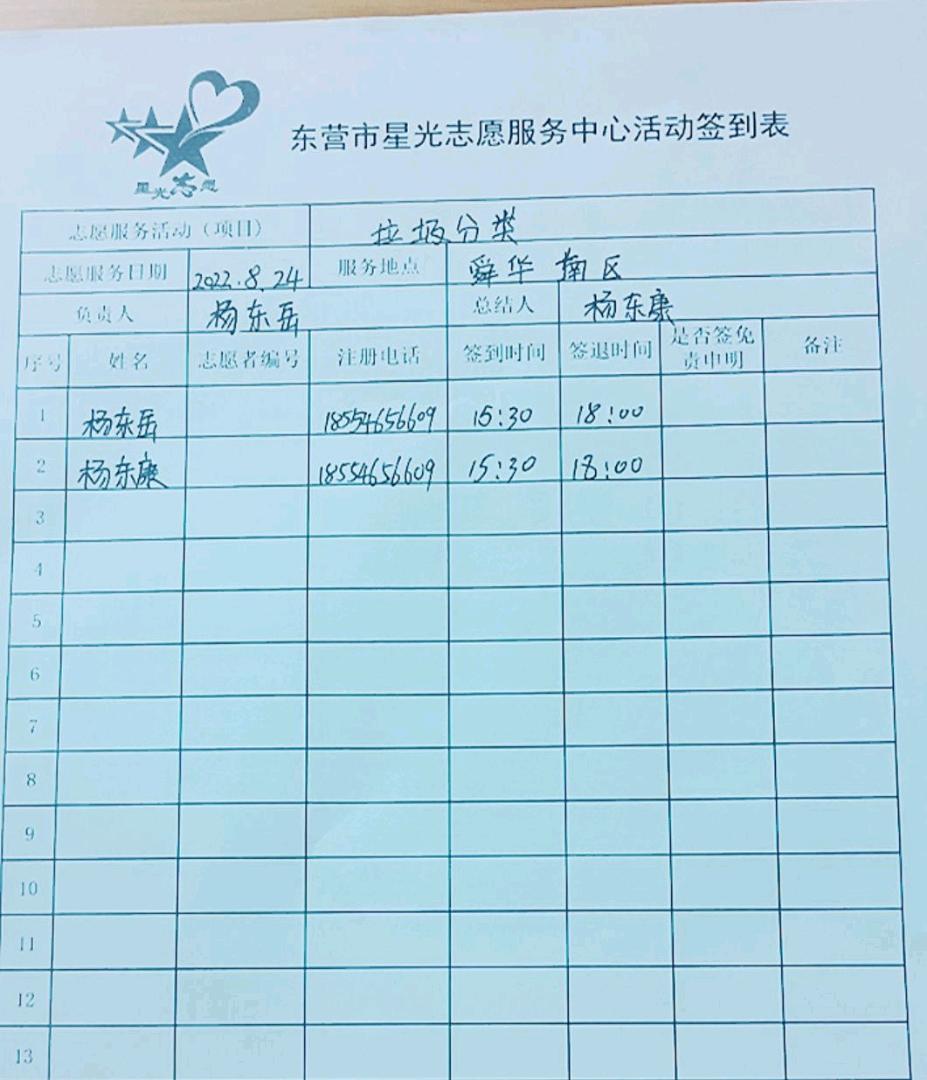 星光志愿
东营市星光志愿服务中心活动签到表
志愿服务活动（项目） 垃圾分类
志愿服务日期 2022.8.24 服务地点 舜华南区
负责人 杨东岳 总结人 杨东康
序号 姓名 志愿者编号 注册电话 签到时间 签退时间 是否签免责申明 备注
1 杨东岳 18554656609 15:30 18:00
2 杨东康 18554656609 15:30 18:00
3
4
5
6
7
8
9
10
11
12
13